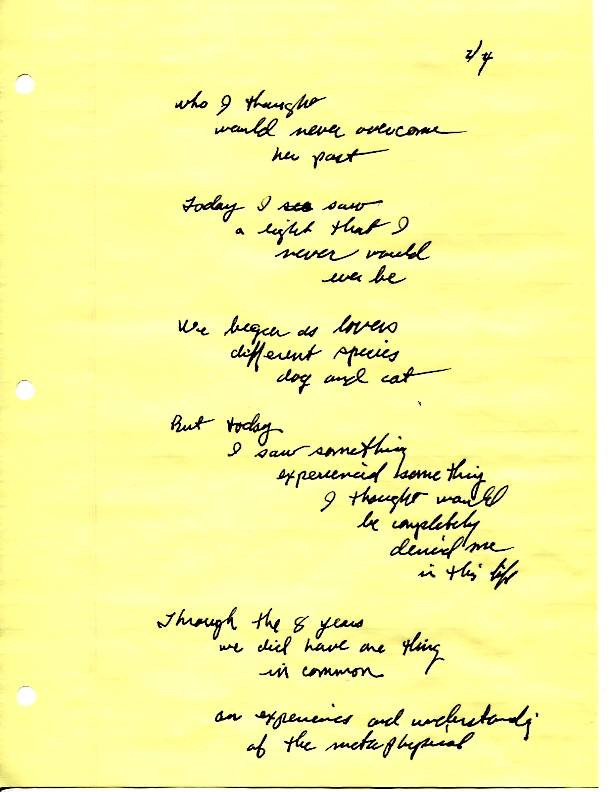 2/4
who I thought
would never overcome
her past
Today I see saw
a light that I
never would
ever be
We began as lovers
different species
dog and cat
But today
I saw something
experienced something
I thought would
be completely
denied me
in this life
Through the 8 years
we did have one thing
in common
an experience and understanding
of the metaphysical